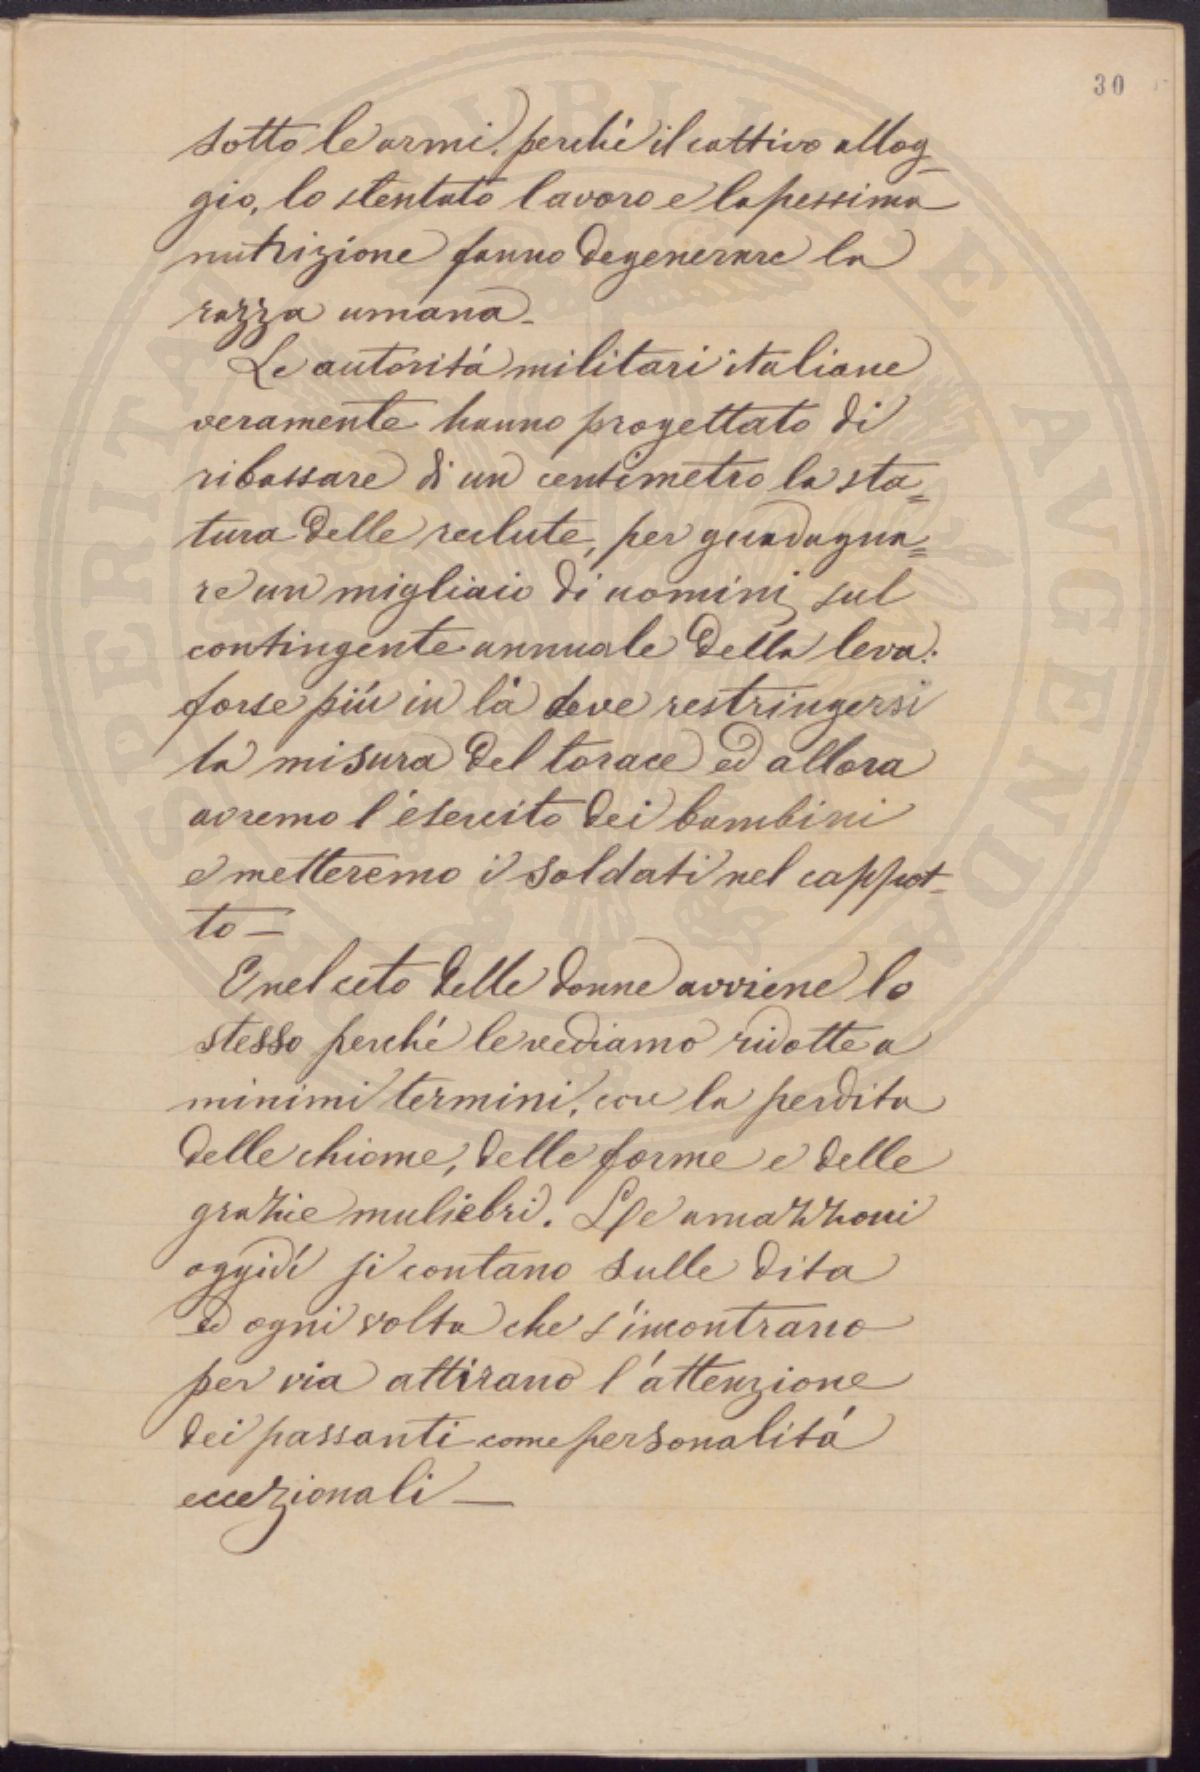 30
sotto le armi, perché il cattivo allog-
gio, lo stentato lavoro e la pessima
nutrizione fanno degenerare la
razza umana.
Le autoritá militari italiane
veramente hanno progettato di
ribassare di un centimetro la sta=
tura delle reclute, per guadagna=
re un migliaio di uomini sul
contingente annuale della leva:
forse piú in lá deve restringersi
la misura del torace ed allora
avremo l'esercito dei bambini
e metteremo i soldati nel cappot-
to —
E nel ceto delle donne avviene lo
stesso perché le vediamo ridotte a
minimi termini, con la perdita
delle chiome, delle forme e delle
grazie muliebri. Le amazzoni
oggidí si contano sulle dita
ed ogni volta che s'incontrano
per via attirano l'attenzione
dei passanti come personalitá
eccezionali —